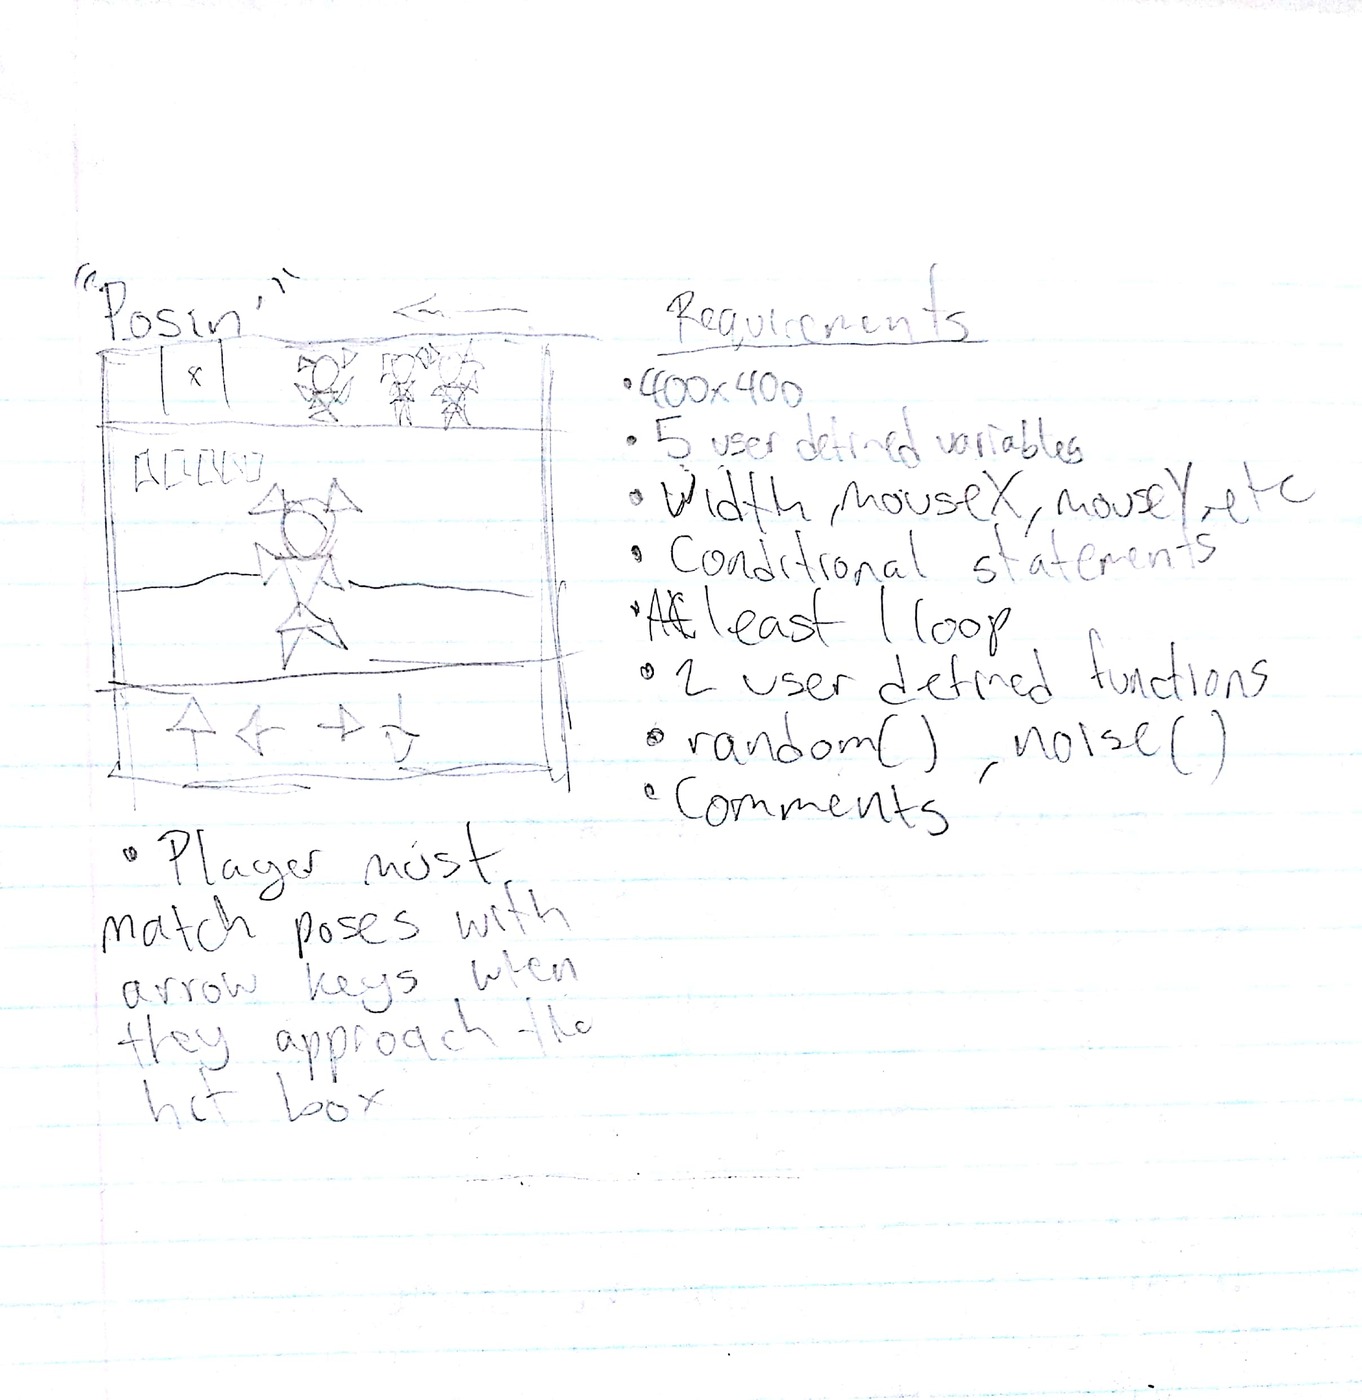 "Posin'"
x
Requirements
• 400x400
• 5 user defined variables
• Width, mouseX, mouseY, etc
• Conditional statements
• At least 1 loop
• 2 user defined functions
• random(), noise()
• Comments
• Player must
match poses with
arrow keys when
they approach the
hit box